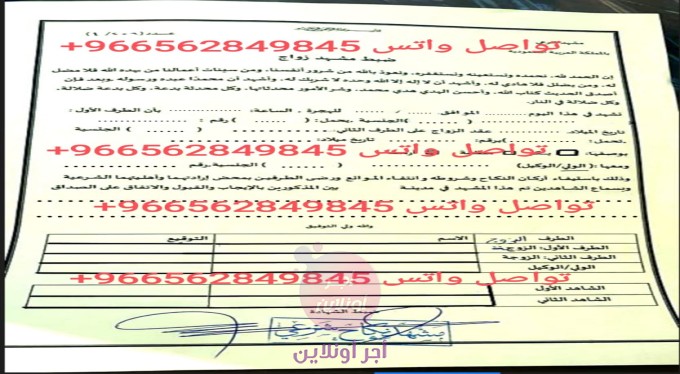 تواصل واتس 966562849845+
ضبط مشهد زواج
إن الحمد لله، نحمده ونستعينه ونستغفره، ونعوذ بالله من شرور أنفسنا، ومن سيئات أعمالنا من يهده الله فلا مضل
له، ومن يضلل فلا هادي له، وأشهد أن لا إله إلا الله وحده لا شريك له، وأشهد أن محمدًا عبده ورسوله وبعد فإن
أصدق الحديث كتاب الله، وأحسن الهدي هدي محمد، وشر الأمور محدثاتها، وكل محدثة بدعة، وكل بدعة ضلالة،
وكل ضلالة في النار.
نشهد في هذا اليوم الموافق / / للهجرة ، الساعة: بأن الطرف الأول:
( ) الجنسية ، يحمل: ( ) رقم :
تاريخ الميلاد عقد الزواج على الطرف الثاني ( ) الجنسية
تحمل: ( ) برقم: تاريخ ميلاد:
تواصل واتس 966562849845+
بوصفها:
ومعها: (الولي/الوكيل) ( ) الجنسية رقم
وذلك باستيفاء أركان النكاح وشروطه و انتفاء الموانع ورضى الطرفين بمحض إرادتهما وأهليتهما الشرعية
وبسماع الشاهدين تم هذا المشهد في مدينة بين المذكورين بالإيجاب والقبول والاتفاق على الصداق
تواصل واتس 966562849845+
والله ولي التوفيق
الطرف الاسم التوقيع
الطرف الأول: الزوج
الطرف الثاني: الزوجة
الولي/الوكيل
تواصل واتس 966562849845+
الشاهد الأول
الشاهد الثاني
ضبط الشهادة
مشهد نكاح شرعي
اجر اونلاين